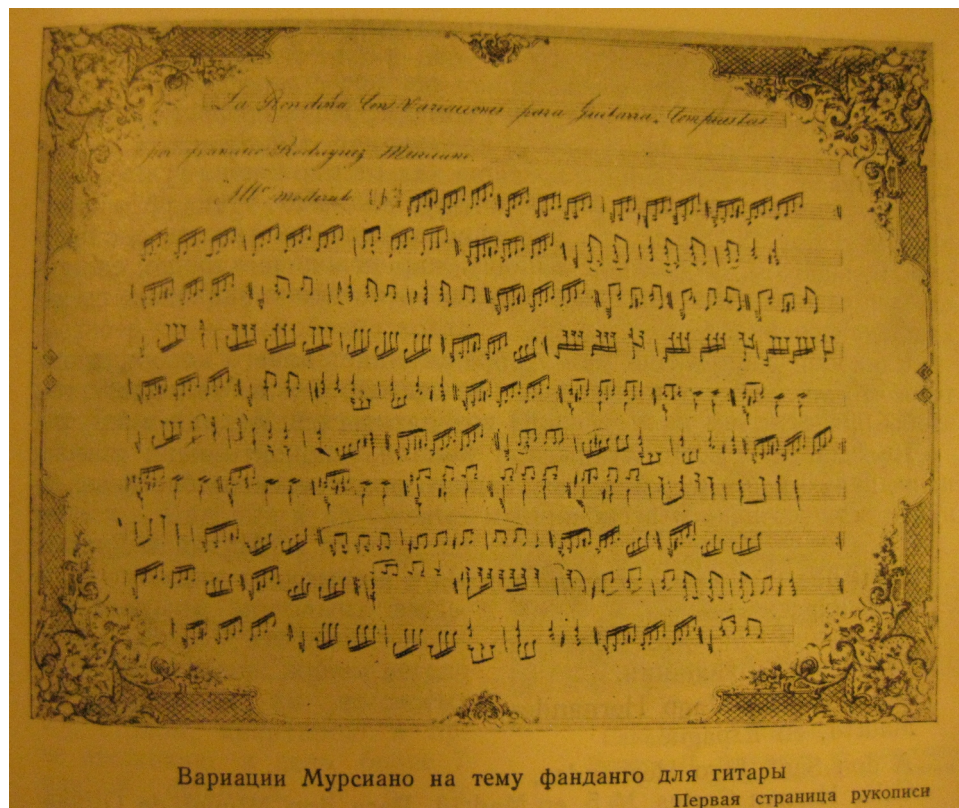 La Rondeña Con Variaciones para Guitarra. Compuestas
por Francisco Rodriguez Murciano.
All.º moderato
Вариации Мурсиано на тему фанданго для гитары
Первая страница рукописи